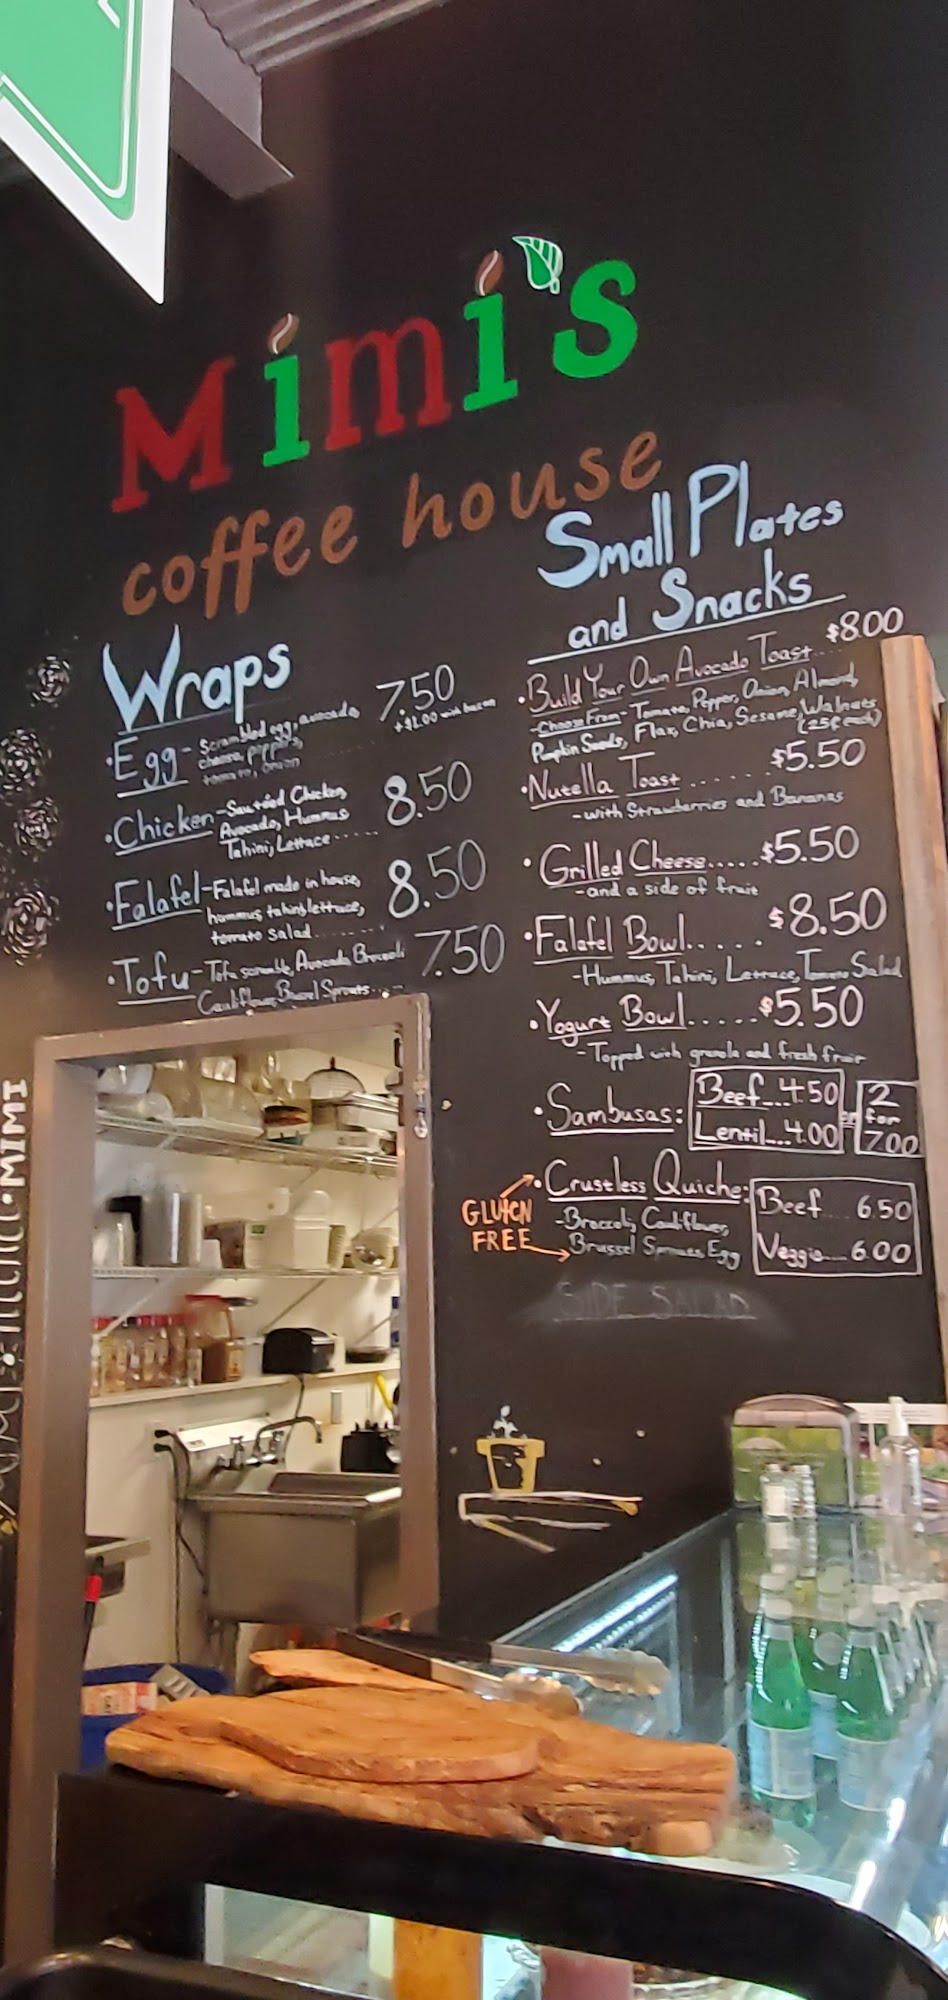 Mimi's
coffee house
Wraps
• Egg - Scrambled egg, avocado, 7.50
cheese, peppers, +$1.00 with bacon
tomato, onion
• Chicken - Sautéed Chicken, 8.50
Avocado, Hummus
Tahini, Lettace.....
• Falafel - Falafel made in house, 8.50
hummus, tahini, lettuce,
tomato salad.......
• Tofu - Tofu scramble, Avocado, Broccoli 7.50
Cauliflower, Brussel Sprouts....
Small Plates
and Snacks
• Build Your Own Avocado Toast... $8.00
- Choose From - Tomato, Pepper, Onion, Almond,
Pumpkin Seeds, Flax, Chia, Sesame, Walnuts
(25¢ each)
• Nutella Toast....... $5.50
- with Strawberries and Bananas
• Grilled Cheese..... $5.50
- and a side of fruit
• Falafel Bowl..... $8.50
- Hummus, Tahini, Lettuce, Tomato Salad
• Yogurt Bowl..... $5.50
- Topped with granola and fresh fruit
• Sambusas: Beef...4.50 or 2 for 7.00
Lentil...4.00
• Crustless Quiche: Beef... 6.50
- Broccoli, Cauliflower, Veggie....6.00
Brussel Sprouts, Egg
GLUTEN
FREE
SIDE SALAD
MIMI